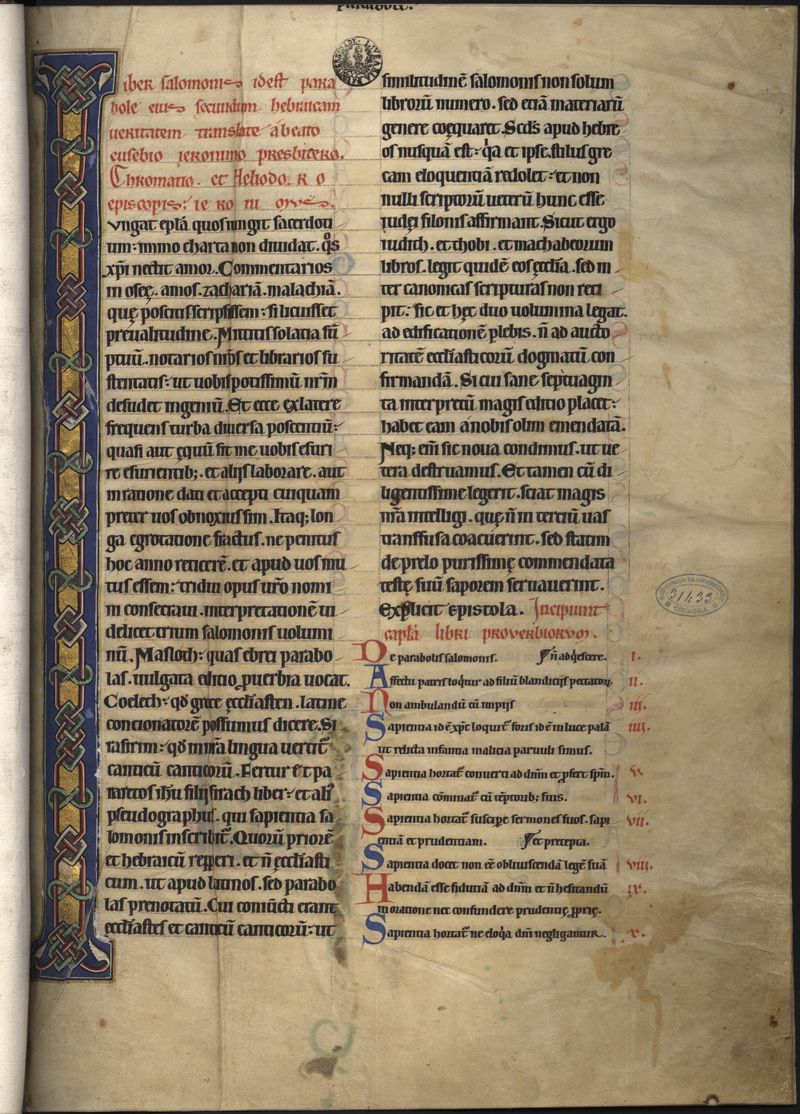 parabole.
iber salomonis idest para
bole eius secundum hebraicam
ueritatem translate a beato
eusebio ieronimo presbitero.
Chromatio. et Heliodo. R O
episcopis: ie Ro ni
Vngat ep̄la quos iungit sacerdoti
um: immo charta non diuidat. q̊s
xp̄i nectit amor. Commentarios
in oseę. amos. zachariā. malachiā.
quę poscitis scripsissem: si licuisset
pre ualitudine. Mittitis solatia sū
ptuū. notarios nr̄os et librarios su
stentatis: ut uobis potissimū nr̄m
desudet ingeniū. Et ecce ex latere
frequens turba diuersa poscentiū:
quasi aut ęquū sit me uobis esuri
re esurientib;. et alijs laborare. aut
in ratione dati et accepti cuiquam
preter uos obnoxius sim. Itaq; lon
ga egrotatione fractus. ne penitus
hoc anno reticerē. et apud uos mu
tus essem: tridui opus ur̄o nomi
ni consecraui. interpretationē ui
delicet trium salomonis uolumi
nū. Masloth: quas ebrei parabo
las. uulgata editio puerbia uocat.
Coelech: qd̄ grece ęcclīasten. latine
contionatorē possumus dicere. Si
rasirim: qd̄ in nr̄a lingua uertit᷑
canticū canticorū. Fertur et pa
naretos ih̄u filij sirach liber: et ali᷒
pseudographus. qui sapientia sa
lomonis inscribit᷑. Quorū priorē
et hebraicū repperi. et ñ ęcclīasti
cum. ut apud latinos. sed parabo
las prenotatū. Cui coniūcti erant
ęcclīastes et canticū canticorū: ut
similitudinē salomonis non solum
librorū numero. sed etiā materiarū
genere coęquaret. Scd̄s apud hebre
os nusquā est: q̄a et ipse stilus gre
cam eloquentiam redolet: et non
nulli scriptorū ueterū hunc esse
iudęi filonis affirmant. Sicut ergo
iudith. et thobi. et machabeorum
libros. legit quidē eos ęcclīa. sed in
ter canonicas scripturas non reci
pit: sic et hęc duo uolumina legat.
ad edificationē plebis. ñ ad aucto
ritatē ecclīasticorū dogmatū con
firmandā. Si cui sane septuagin
ta interpretū magis editio placet:
habet eam a nobis olim emendatā.
Neq; eni᷒ sic noua condimus. ut ue
tera destruamus. Et tamen cū di
ligentissime legerit. sciat magis
nr̄a intelligi. quę ñ in tertiū uas
transfusa coacuerint. sed statim
de prelo purissimę commendata
testę suū saporem seruauerint.
Explicit epistola. Incipiunt
capl̄a libri proverbiorvm.
De parabolis salomonis. I.
Affectu patris loq̄tur ad filiū blandicijs peccatorū. II.
Non ambulandū cū impijs III.
Sapientia id ē xp̄c loquit᷑ foris id ē in luce palā IIII.
ut relicta infantia malicia paruuli simus.
Sapientia hortat᷑ conuerti ad dn̄m et pfert sp̄m. V.
Sapientia cōminat᷑ cū tēptorib; suis. VI.
Sapientia hortat᷑ suscipe sermones suos. sapi VII.
entiā et prudentiam. et precepta.
Sapientia docet non ēē obliuiscendā legē suā VIII.
Habendā esse fiduciā ad dn̄m et ñ hesitandū IX.
in oratione nec confundere prudentię pprię.
Sapientia hortat᷑ ne eloq̄a dn̄i negligantur. X.
31433